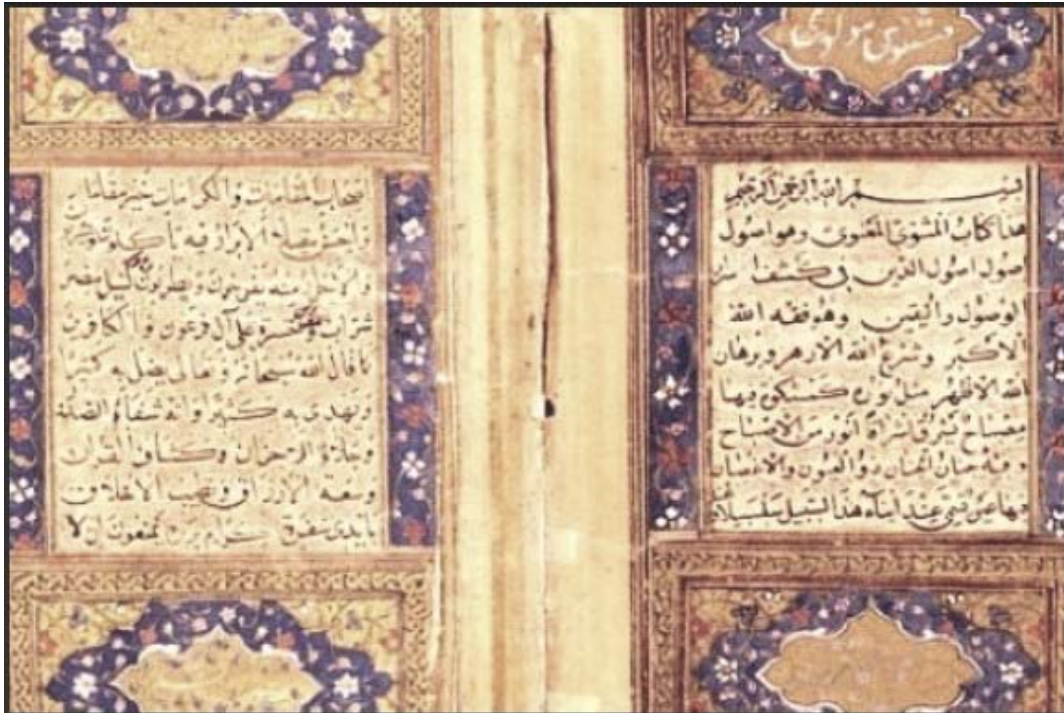 مثنوی مولوی
بسم الله الرحمن الرحيم
هذا كتاب المثنوی المعنوی وهو اصول
اصول اصول الدين فی كشف اسرار
الوصول واليقين وهو فقه الله
الاكبر وشرع الله الازهر وبرهان
الله الاظهر مثل نوره كمشكوة فيها
مصباح يشرق اشراقا انور من الاصباح
وهو جنان الجنان ذو العيون والاغصان
فيها عين تسمى عند ابناء هذا السبيل سلسبيلا
اصحاب المقامات والكرامات خير مقاما
واحسن مقيلا الابرار فيه ياكلون ويشربون
والاحرار منه يفرحون ويطربون كنيل مصر
شراب وحسرة على آل فرعون والكافرين
كما قال الله سبحانه وتعالى يضل به كثيرا
ويهدی به كثيرا وانه شفاء الصدور
وجلاء الاحزان وكشاف القران
وسعة الارزاق وتطييب الاخلاق
بايدی سفرة كرام بررة يمنعون ان لا